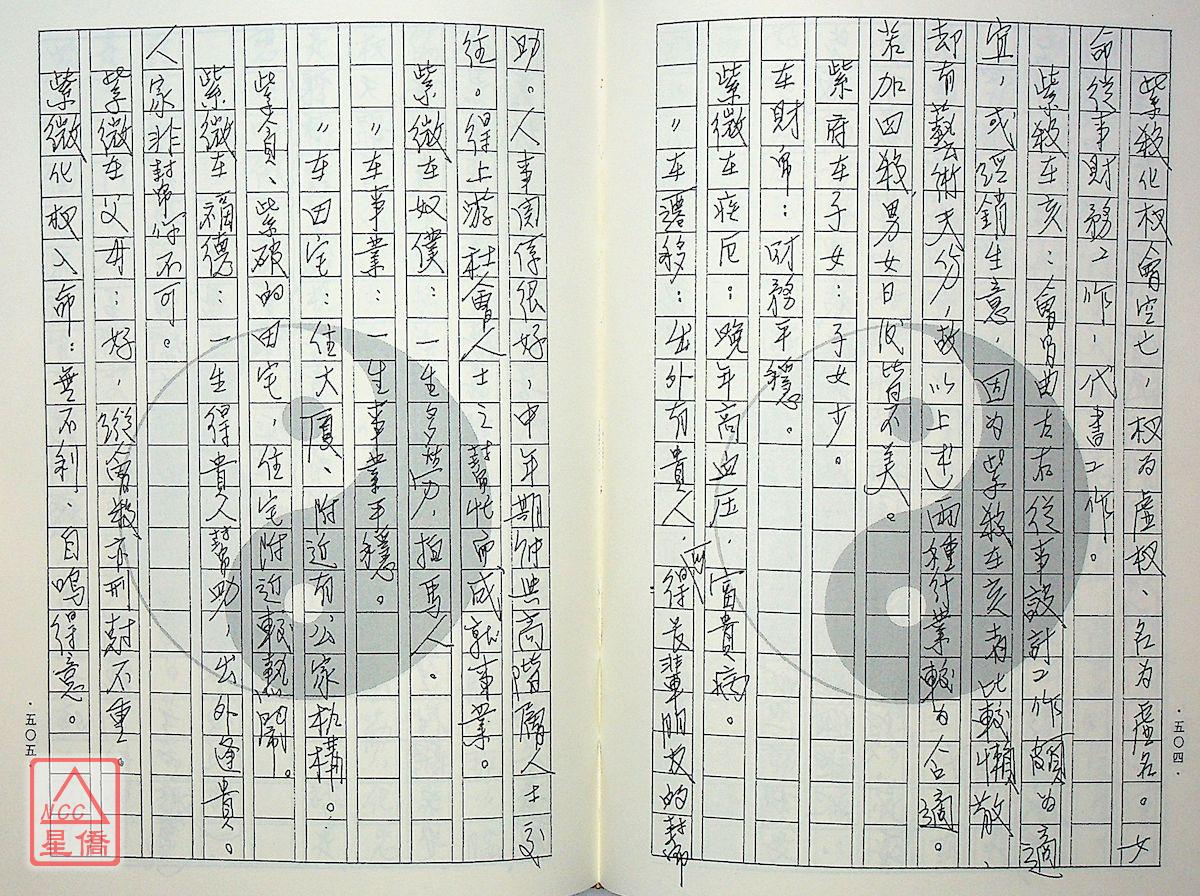 紫殺化权會空亡，权為虛权、名為虛名。女
命從事財務工作，代書工作。
紫殺在亥：會昌曲左右從事設計工作頗為適
宜，或經銷生意，因為紫殺在亥者比較懶散、
却有藝術天份，故以上述兩種行業較為合適。
若加四殺，男女日後皆不美。
紫府在子女：子女少。
在財帛：財務平穩。
紫微在疾厄：晚年高血压，富貴病。
〃在遷移：出外有貴人，得長輩朋友的幫
·五〇四·
助。人事関係很好，中年期往
與高階層人士交
往。得上游社會人士之幫忙而成就事業。
紫微在奴僕：一生多勞，拍馬人。
〃在事業：一生事業平穩。
〃在田宅：住大厦、附近有公家机構。
紫貪、紫破的田宅，住宅附近較熱鬧。
紫微在福德：一生得貴人幫助，出外逢貴。
人家非幫你不可。
紫微在父母：好，縱會殺亦刑尅不重。
紫微化权入命：無不利、自鳴得意。
·五〇五·
NCC
星僑